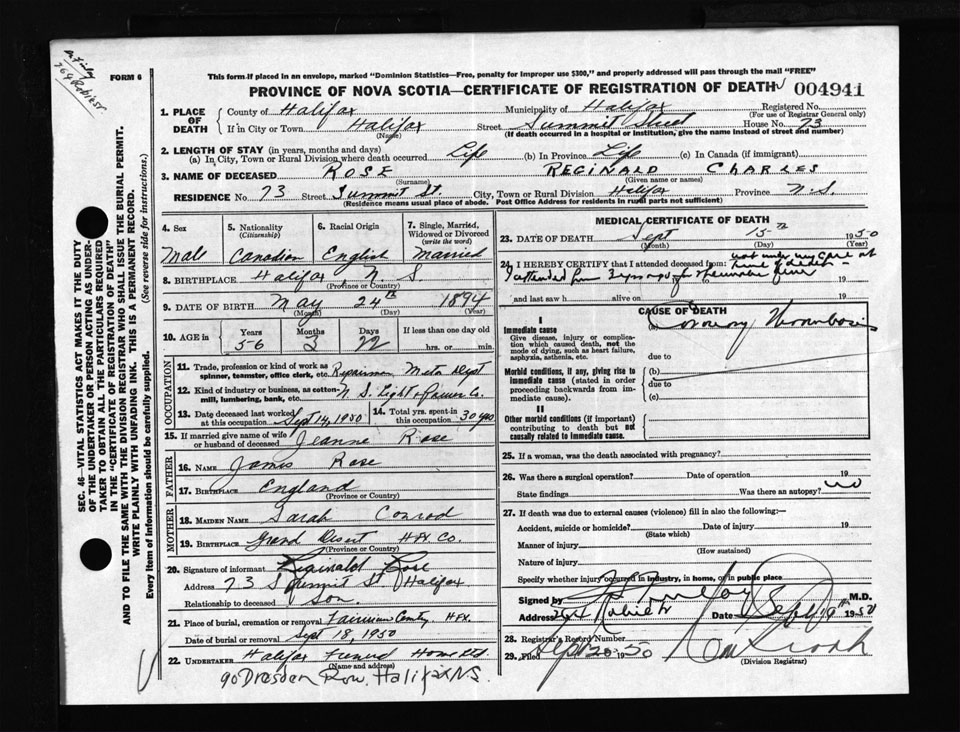 FORM 6
This form if placed in an envelope, marked "Dominion Statistics—Free, penalty for improper use $300," and properly addressed will pass through the mail "FREE"
PROVINCE OF NOVA SCOTIA—CERTIFICATE OF REGISTRATION OF DEATH 004941
1. PLACE OF DEATH
County of Halifax Municipality of Halifax Registered No.
(For use of Registrar General only)
If in City or Town Halifax Street Summit Street House No. 73
(Name) (If death occurred in a hospital or institution, give the name instead of street and number)
2. LENGTH OF STAY (in years, months and days)
(a) In City, Town or Rural Division where death occurred Life (b) In Province Life (c) In Canada (if immigrant)
3. NAME OF DECEASED ROSE REGINALD CHARLES
(Surname) (Given name or names)
RESIDENCE No. 73 Street Summit St. City, Town or Rural Division Halifax Province N.S.
(Residence means usual place of abode. Post Office Address for residents in rural parts not sufficient)
4. Sex
Male
5. Nationality
(Citizenship)
Canadian
6. Racial Origin
English
7. Single, Married, Widowed or Divorced
(write the word)
Married
8. BIRTHPLACE Halifax N. S
(Province or Country)
9. DATE OF BIRTH May 24th 1894
(Month) (Day) (Year)
10. AGE in Years Months Days If less than one day old
56 3 22 hrs. or min.
OCCUPATION
11. Trade, profession or kind of work as spinner, teamster, office clerk, etc. Repairman Meter Dept
12. Kind of industry or business, as cotton-mill, lumbering, bank, etc. N. S. Light & Power Co.
13. Date deceased last worked at this occupation Sept 14, 1950
14. Total yrs. spent in this occupation 30 yrs
15. If married give name of wife or husband of deceased Jeanne Rose
FATHER
16. NAME James Rose
17. BIRTHPLACE England
(Province or Country)
MOTHER
18. MAIDEN NAME Sarah Conrod
19. BIRTHPLACE Grand Desert Hfx Co.
(Province or Country)
20. Signature of informant Reginald Rose
Address 73 Summit St Halifax
Relationship to deceased Son.
21. Place of burial, cremation or removal Fairview Cemty. HFX.
Date of burial or removal Sept 18, 1950
22. UNDERTAKER Halifax Funeral Home Ltd.
(Name and address)
90 Dresden Row, Halifax N.S.
MEDICAL CERTIFICATE OF DEATH
23. DATE OF DEATH Sept 15th 1950
(Month) (Day) (Year)
24. I HEREBY CERTIFY that I attended deceased from:
19
and last saw h alive on 19
CAUSE OF DEATH
I
Immediate cause
Give disease, injury or complication which caused death, not the mode of dying, such as heart failure, asphyxia, asthenia, etc.
(a) Coronary Thrombosis
due to
Morbid conditions, if any, giving rise to immediate cause (stated in order proceeding backwards from immediate cause).
(b)
due to
(c)
II
Other morbid conditions (if important) contributing to death but not causally related to immediate cause.
25. If a woman, was the death associated with pregnancy?
26. Was there a surgical operation? Date of operation 19
State findings Was there an autopsy? no
27. If death was due to external causes (violence) fill in also the following:
Accident, suicide or homicide? Date of injury 19
(State which)
Manner of injury
(How sustained)
Nature of injury
Specify whether injury occurred in industry, in home, or in public place
Signed by M.D.
Address Date Sept 19th 1950
28. Registrar's Record Number
29. Filed Sept 20 1950
(Division Registrar)
SEC. 46—VITAL STATISTICS ACT MAKES IT THE DUTY
OF THE UNDERTAKER OR PERSON ACTING AS UNDER-
TAKER TO OBTAIN ALL THE PARTICULARS REQUIRED
IN THE "CERTIFICATE OF REGISTRATION OF DEATH"
AND TO FILE THE SAME WITH THE DIVISION REGISTRAR WHO SHALL ISSUE THE BURIAL PERMIT.
WRITE PLAINLY WITH UNFADING INK. THIS IS A PERMANENT RECORD.
Every item of information should be carefully supplied. (See reverse side for instructions.)